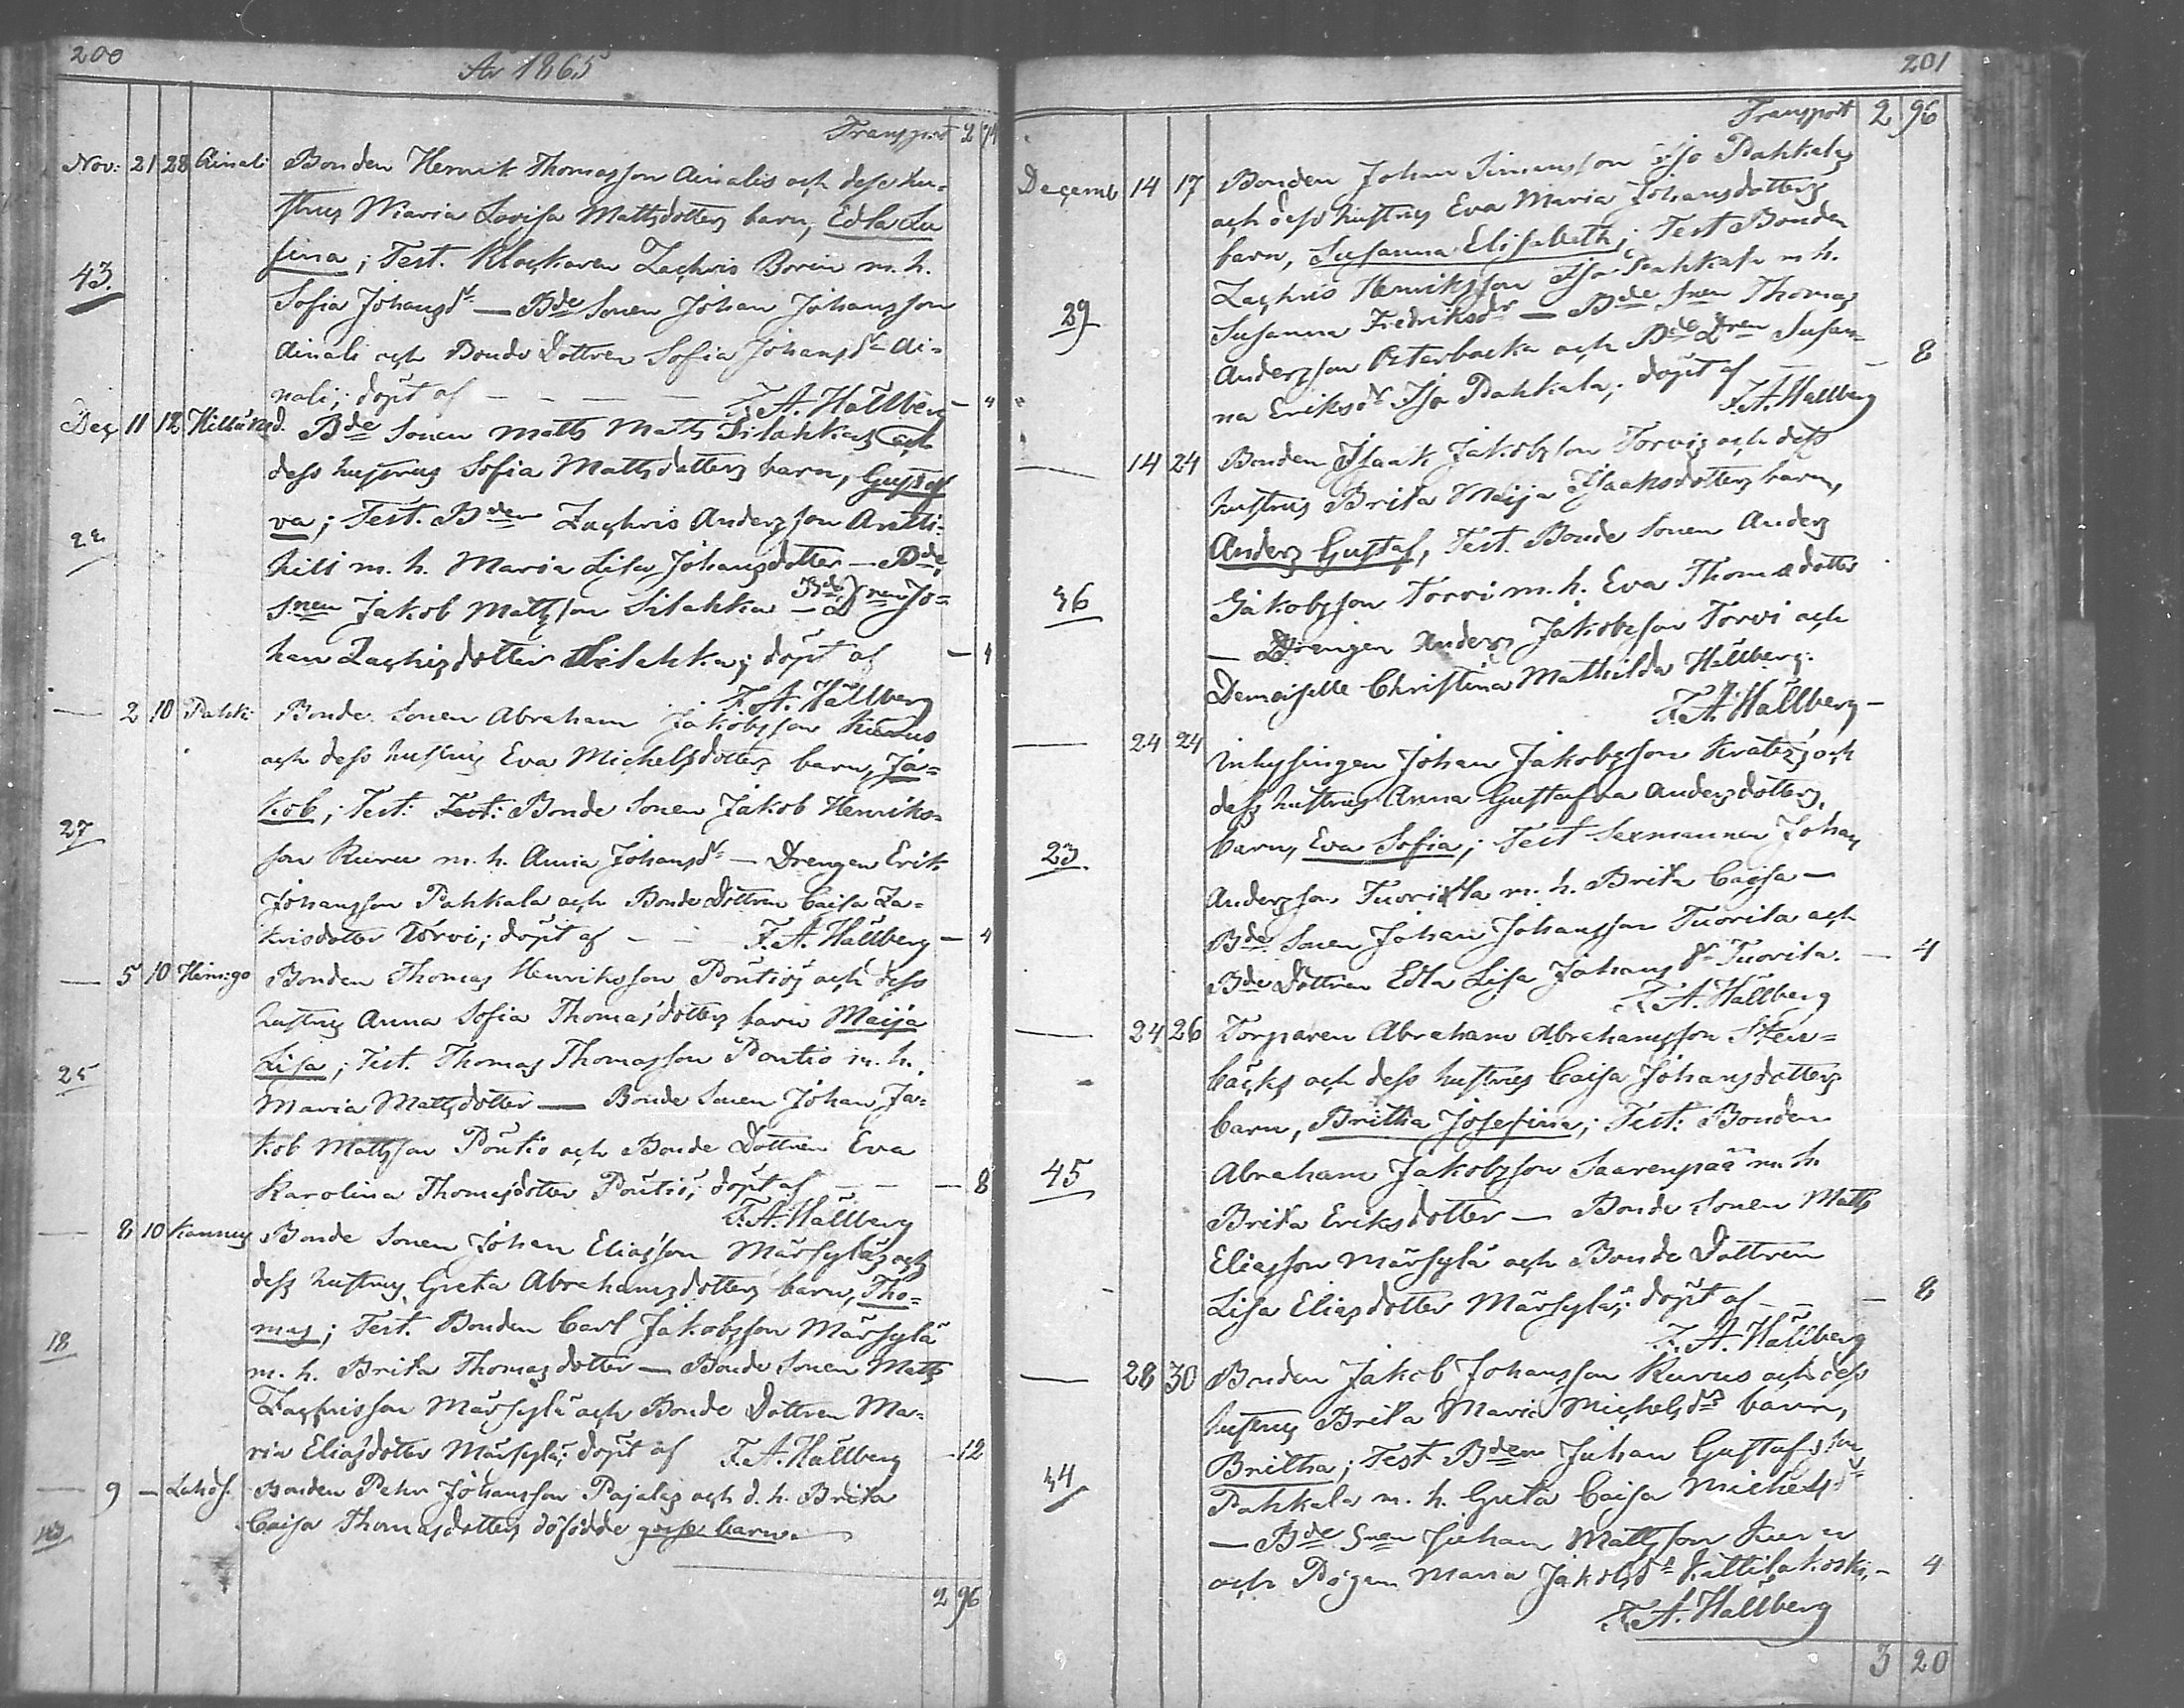 200
År 1865
Transport 2
Nov: 21 28 Ainali Bonden Henrik Thomasson Ainalis och dess hu-
strus Maria Lovisa Mattsdotters barn, Edla Lu
sina; Test. Klockaren Zachris Borin m. h.
43.
Sofia Johansdr — Bde Sonen Johan Johansson
Ainali och Bonde Dottren Sofia Johansdr Ai-
nali; döpt af — — — — F. A. Hällberg — 4
Dec 11 12 Bde Sonen Matts Matts Silahkas och
dess hustrus Sofia Mattsdotters barn, Gustaf
va; Test. Bden Zachris Andersson Antti-
22
hili m. h. Maria Lisa Johansdotter — Bde
Snen Jakob Mattsson Silahka — Bde Dren Jo-
han Zachisdotter Silahka; döpt af — 4
F. A. Hällberg
— 2 10 Pahk: Bonde Sonen Abraham Jakobsson Kurus
och dess hustrus Eva Michelsdotters barn, Ja-
kob; Test: Test: Bonde Sonen Jakob Henriks-
27
son Kuru m. h. Anna Johansdr — Drengen Erik
Johansson Pahkala och Bonde Dottren Caisa Za-
krisdotter Torvi; döpt af — — F. A. Hällberg — 4
— 5 10 Himigo Bonden Thomas Henriksson Pöntiös och dess
hustrus Anna Sofia Thomasdotters barn Maija
Lisa; Test. Thomas Thomasson Pöntiö m. h.
25
Maria Mattsdotter — Bonde Sonen Johan Ja-
kob Mattsson Pöntiö och Bonde Dottren Eva
Karolina Thomasdotter Pöntiö; döpt af — — — 8
F. A. Hällberg
— 8 10 Kannus Bonde Sonen Johan Eliasson Märsyläs och
dess hustrus Greta Abrahamsdotters barn, Tho-
mas; Test. Bonden Carl Jakobsson Märsylä
18
m. h. Brita Thomasdotter — Bonde Sonen Matts
Zachrisson Märsylä och Bonde Dottren Ma-
ria Eliasdotter Märsylä; döpt af F. A. Hällberg — 12
— 9 — Bonden Pehr Johansson Pajalas och d. h. Brita
Caisa Thomasdotters döfödde gosse barn.
2 96
201
Transport 2 96
Decemb 14 17 Bonden Johan Simonsson Iso Pahkalas
och dess hustrus Eva Maria Johansdotters
barn, Susanna Elisabeth; Test Bonden
Zachris Henriksson Iso Pahkala m h.
29
Susanna Fredriksdr — Bde Snen Thomas
Andersson Östarbacka och Bde Dren Susan-
na Eriksdr Iso Pahkala; döpt af — — 8
F. A. Hällberg
— 14 24 Bonden Isaak Jakobsson Torvis och dess
hustrus Brita Maija Isaaksdotters barn,
Anders Gustaf, Test. Bonde Sonen Anders
36
Jakobsson Torvi m. h. Eva Thomasdotter
— Drengen Anders Jakobsson Torvi och
Demoiselle Christina Mathilda Hällberg.
F. A. Hällberg —
— 24 24 Inhysingen Johan Jakobsson Krats; och
dess hustrus Anna Gustafva Andersdotters,
barn, Eva Sofia; Test Sexmannen Johan
23
Andersson Tuorila m. h. Brita Caisa —
Bde Sonen Johan Johansson Tuorila och
Bde Dottren Edla Lisa Johans dr Tuorila. — 4
F. A. Hällberg
— 24 26 Torparen Abraham Abrahamsson Sten-
backs och dess hustrus Caisa Johansdotters
barn, Britha Josefina; Test: Bonden
45
Abraham Jakobsson Saarenpää m. h.
Brita Eriksdotter — Bonde Sonen Matts
Eliasson Märsylä och Bonde Dottren
Lisa Eliasdotter Märsylä; döpt af — — 8
F. A. Hällberg
— 28 30 Bonden Jakob Johansson Kurus och dess
hustrus Brita Maria Michelsdrs barn,
Britha; Test Bden Johan Gustafsson
34
Pahkala m. h. Greta Caisa Michelsdr
— Bde Snen Johan Mattsson Kuru
och Pigan Maria Jakobsdr Kattilakoski, — 4
F. A. Hällberg
3 20